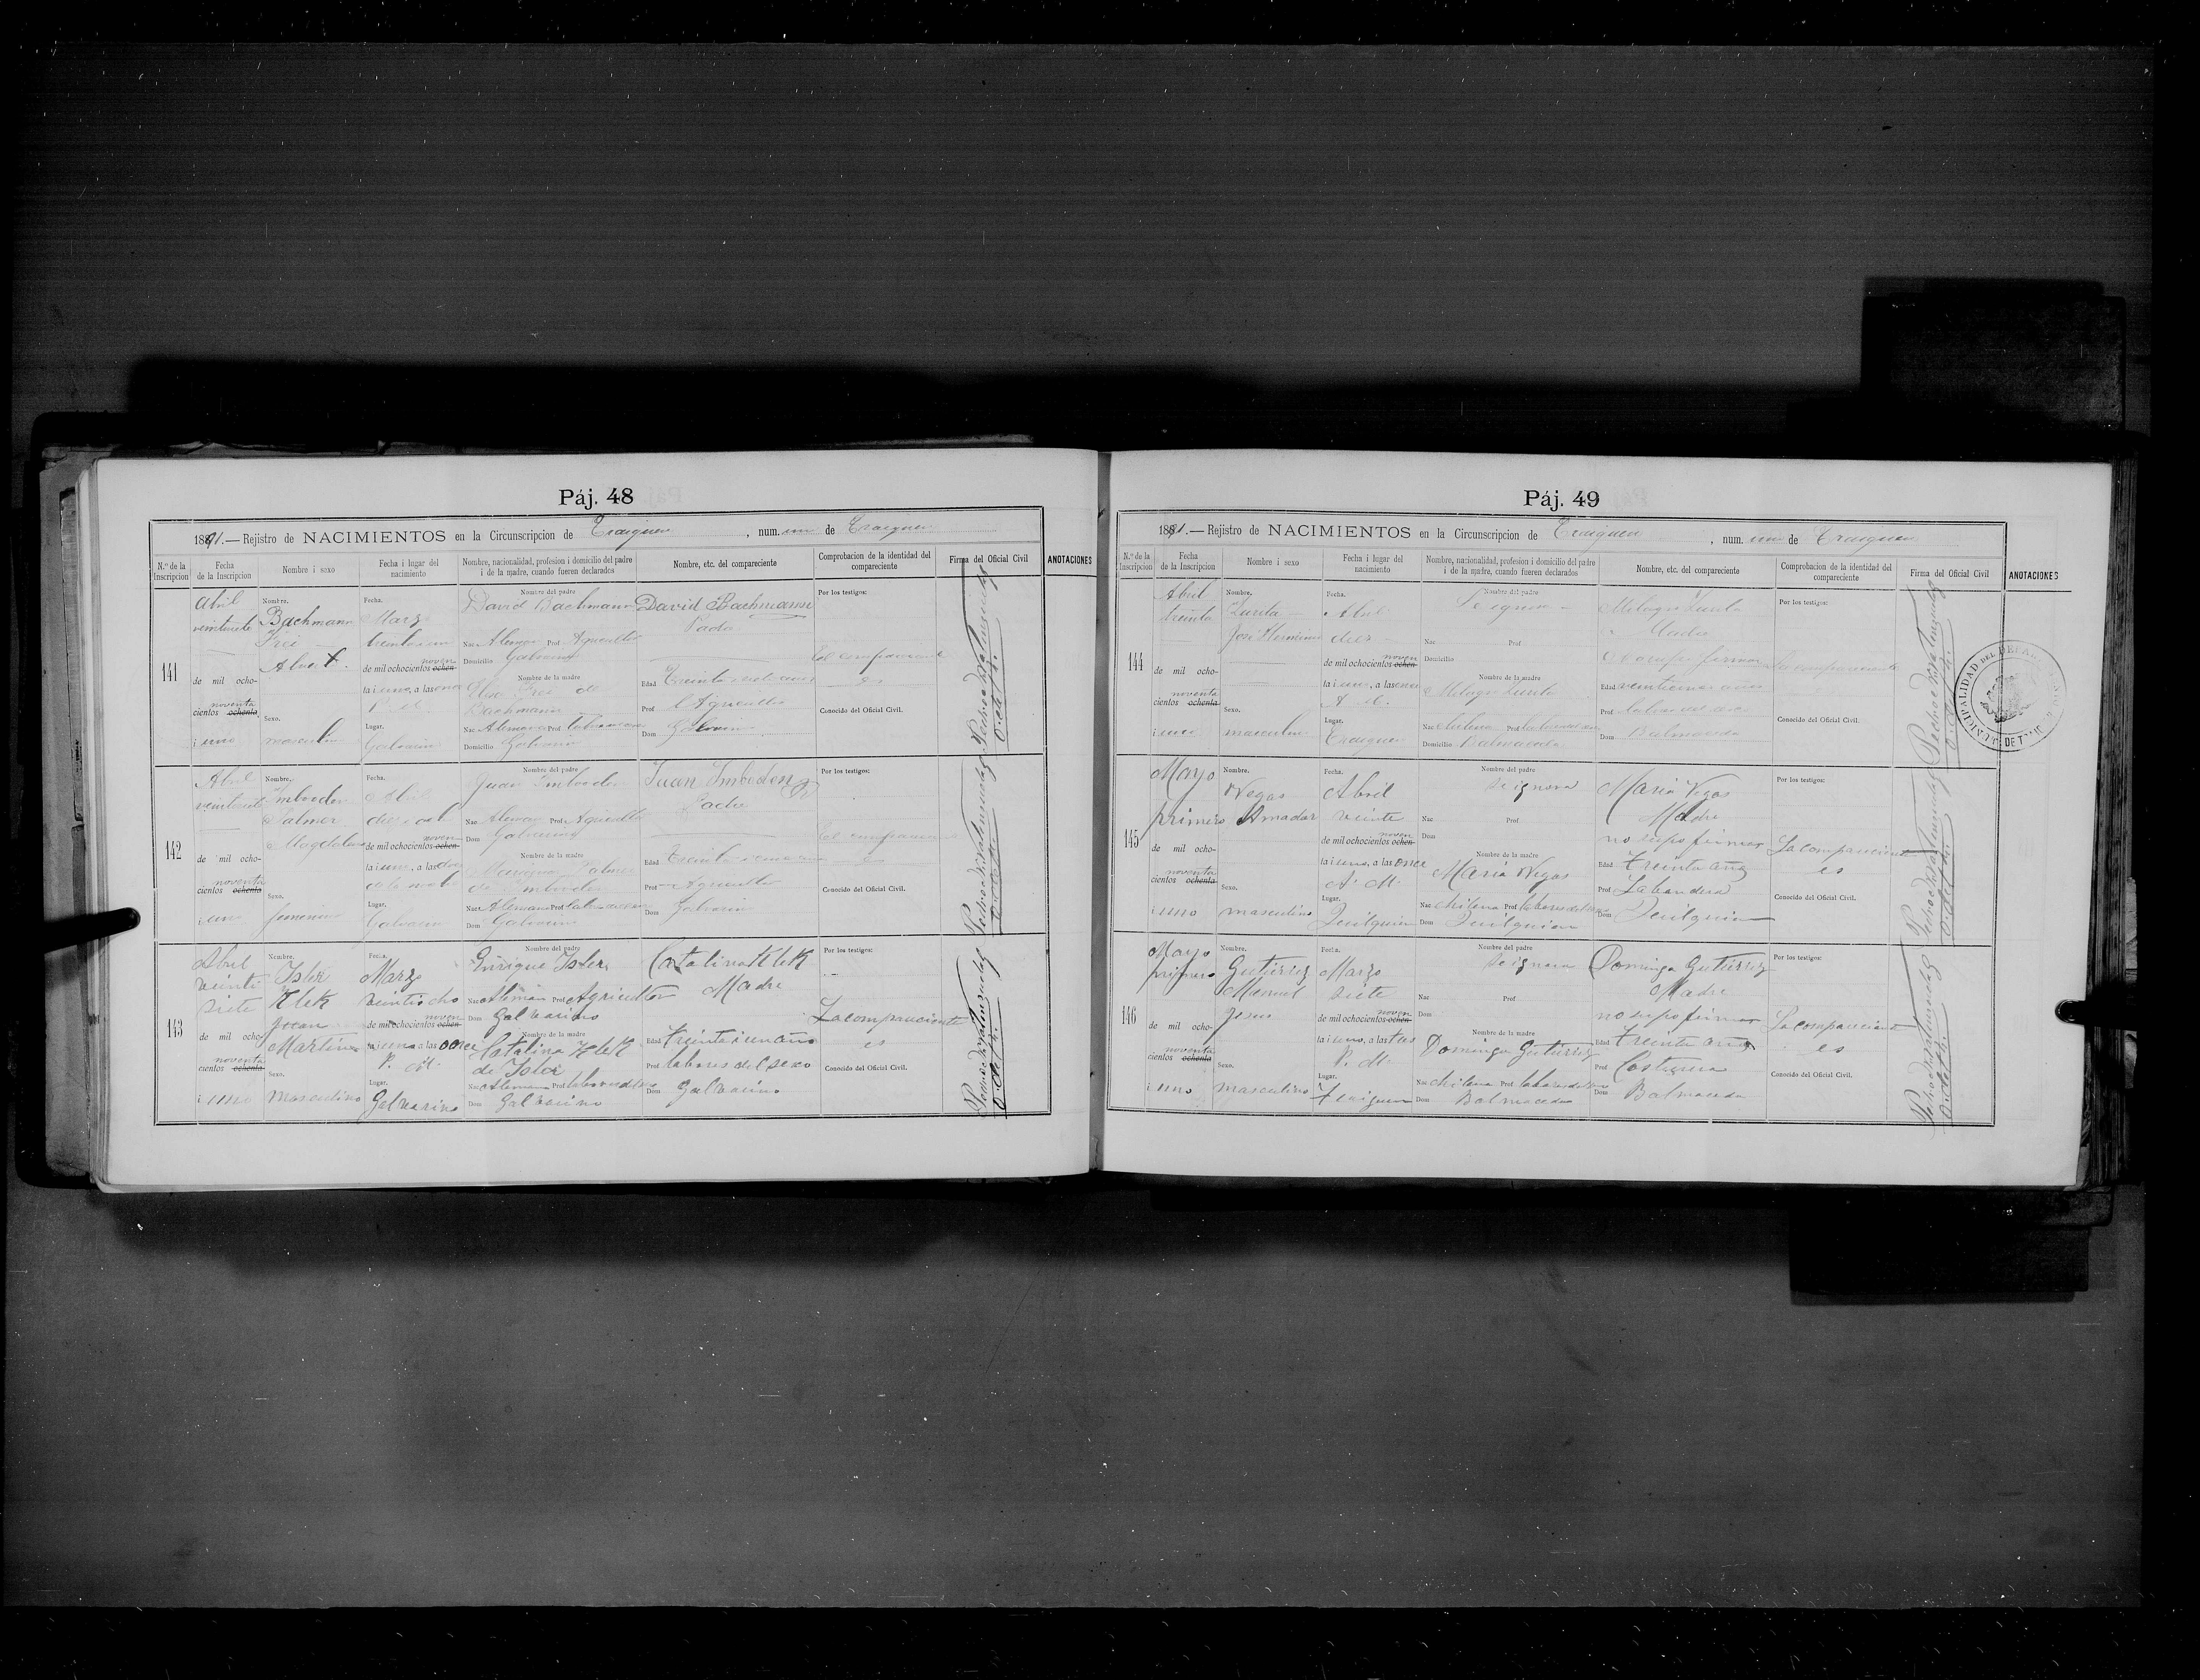 Páj. 48
1891.—Rejistro de NACIMIENTOS en la Circunscripcion de Traiguen, num. uno de Traiguen
N.º de la Inscripcion
Fecha de la Inscripcion
Nombre i sexo
Fecha i lugar del nacimiento
Nombre, nacionalidad, profesion i domicilio del padre i de la madre, cuando fueren declarados
Nombre, etc. del compareciente
Comprobacion de la identidad del compareciente
Firma del Oficial Civil
ANOTACIONES
141
Abril
veintisiete
de mil ocho-
cientos noventa ochenta
i uno
Nombre.
Bachmann
Frei
Albert
Sexo.
masculino
Fecha.
Marzo
treinta i uno
de mil ochocientos noven ochen-
ta i uno, a las once
P. M.
Lugar.
Galvarino
Nombre del padre
David Bachmann
Nac Aleman Prof Agricultor
Domicilio Galvarino
Nombre de la madre
Elisa Frei de
Bachmann
Nac Alemana Prof labores del sexo
Domicilio Galvarino
David Bachmann
Padre
Edad Treinta i siete años
Prof Agricultor
Dom Galvarino
Por los testigos:
El compareciente
es
Conocido del Oficial Civil.
142
Abril
veintisiete
de mil ocho-
cientos noventa ochenta
i uno
Nombre.
Imboden
Palmer
Magdalena
Sexo.
femenino
Fecha.
Abril
dieciocho
de mil ochocientos noven ochen-
ta i uno, a las doce
de la noche
Lugar.
Galvarino
Nombre del padre
Juan Imboden
Nac Aleman Prof Agricultor
Dom Galvarino
Nombre de la madre
Palmer
de Imboden
Nac Alemana Prof labores del sexo
Dom Galvarino
Juan Imboden
Padre
Edad Treinta i
Prof Agricultor
Dom Galvarino
Por los testigos:
El compareciente
es
Conocido del Oficial Civil.
143
Abril
veinte
siete
de mil ocho-
cientos noventa ochenta
i uno
Nombre.
Isler
Klek
Juan
Martin
Sexo.
Masculino
Fecha.
Marzo
veintiocho
de mil ochocientos noven ochen-
ta i uno a las once
P. M.
Lugar.
Galvarino
Nombre del padre
Enrique Isler
Nac Aleman Prof Agricultor
Dom Galvarino
Nombre de la madre
Catalina Klek
de Isler
Nac Alemana Prof labores del sexo
Dom Galvarino
Catalina Klek
Madre
Edad treinta i un años
Prof labores del sexo
Dom Galvarino
Por los testigos:
La compareciente
es
Conocido del Oficial Civil.
Páj. 49
1891.—Rejistro de NACIMIENTOS en la Circunscripcion de Traiguen, num. uno de Traiguen
N.º de la Inscripcion
Fecha de la Inscripcion
Nombre i sexo
Fecha i lugar del nacimiento
Nombre, nacionalidad, profesion i domicilio del padre i de la madre, cuando fueren declarados
Nombre, etc. del compareciente
Comprobacion de la identidad del compareciente
Firma del Oficial Civil
ANOTACIONES
144
Abril
treinta
de mil ocho-
cientos noventa ochenta
i uno
Nombre.
Zurita
José Herminio
Sexo.
masculino
Fecha.
Abril
diez
de mil ochocientos noven ochen-
ta i uno, a las once
A. M.
Lugar.
Traiguen
Nombre del padre
Se ignora
Nac Prof
Domicilio
Nombre de la madre
Milagro Zurita
Nac chilena Prof labores del sexo
Domicilio Balmaceda
Milagro Zurita
Madre
No supo firmar
Edad veinticinco años
Prof labores del sexo
Dom Balmaceda
Por los testigos:
La compareciente
Conocido del Oficial Civil.
145
Mayo
primero
de mil ocho-
cientos noventa ochenta
i uno
Nombre.
Vegas
Amador
Sexo.
masculino
Fecha.
Abril
veinte
de mil ochocientos noven ochen-
ta i uno, a las once
A. M.
Lugar.
Quilquien
Nombre del padre
Se ignora
Nac Prof
Dom
Nombre de la madre
Maria Vegas
Nac chilena Prof labores del sexo
Dom Quilquien
Maria Vegas
Madre
no supo firmar
Edad treinta años
Prof Labandera
Dom Quilquien
Por los testigos:
La compareciente
es
Conocido del Oficial Civil.
146
Mayo
primero
de mil ocho-
cientos noventa ochenta
i uno
Nombre.
Gutierrez
Manuel
Jesus
Sexo.
masculino
Fecha.
Marzo
siete
de mil ochocientos noven ochen-
ta i uno, a las tres
P. M.
Lugar.
Traiguen
Nombre del padre
Se ignora
Nac Prof
Dom
Nombre de la madre
Dominga Gutierrez
Nac chilena Prof labores del sexo
Dom Balmaceda
Dominga Gutierrez
Madre
no supo firmar
Edad treinta años
Prof Costurera
Dom Balmaceda
Por los testigos:
La compareciente
es
Conocido del Oficial Civil.